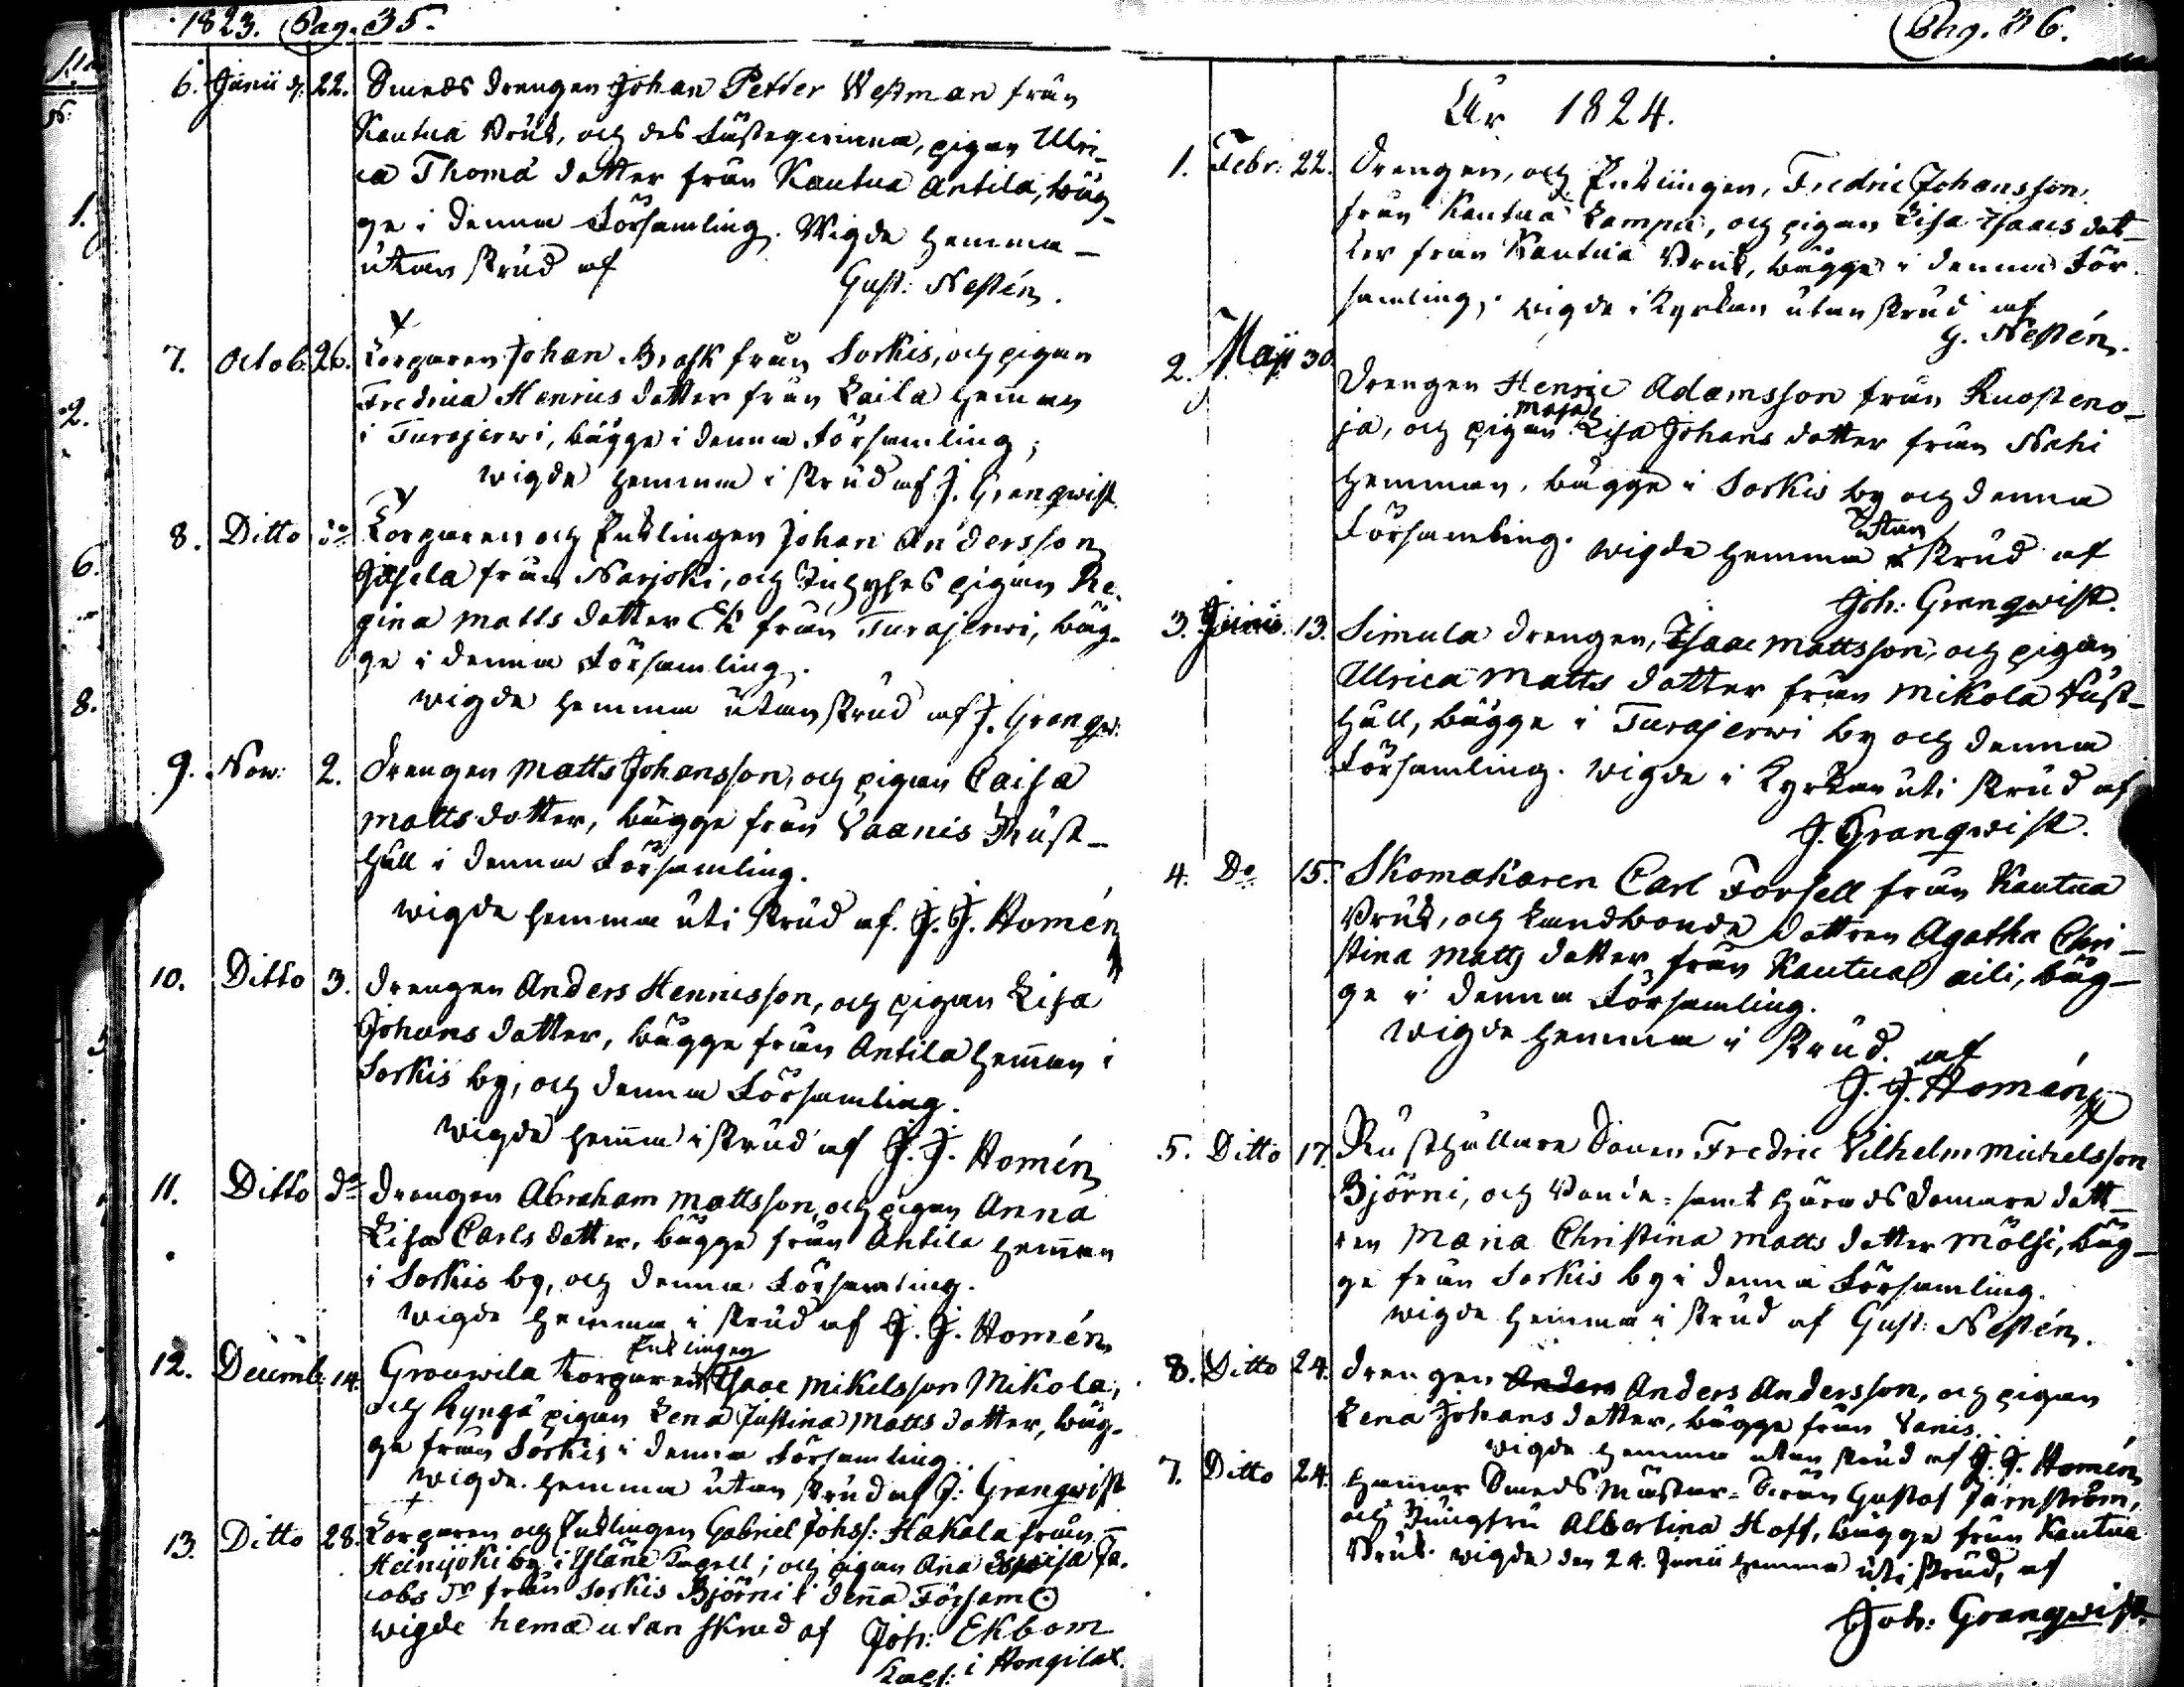 1823. Pag. 35.
6. Junii d. 22. Smeds drengen Johan Petter Westman från
Kautua Bruk, och des Fästeqvinna, pigan Ulri-
ca Thomæ dotter från Kautua Antila, båg-
ge i denna Församling. Wigde hemma
utan skrud af
Gust: Nestén.
7. Octob. 26. Torparen Johan Brask från Sorkis, och pigan
Fredrica Henrics dotter från Laila heman
i Turajerwi, bägge i denna Församling;
wigde hemma i skrud af J. Granqwist
8. Ditto do Torparen och Enklingen Johan Andersson
från Narjoki, och pigan Re-
gina Matts dotter Ek från Turajerwi, båg-
ge i denna Församling.
wigde hemma utan skrud af J. Granqw:
9. Nov: 2. Drengen Matts Johansson, och pigan Caisa
Matts dotter, bägge från Vaanis Rust-
håll i denna Församling.
wigde hemma uti skrud af J. J. Homén
10. Ditto 3. Drengen Anders Henricsson, och pigan Lisa
Johans dotter, bägge från Antila heman i
Sorkis by, och denna Församling.
wigde hema i skrud af J. J. Homén
11. Ditto do Drengen Abraham Mattsson, och pigan Anna
Lisa Carls dotter, bägge från Antila heman
i Sorkis by, och denna Församling.
wigde hemma i skrud af J. J. Homén
Enklingen
12. Decemb. 14. Grouwila torparen Isaac Mikelsson Mikola,
och pigan Lena Justina Matts dotter, båg-
ge från Sorkis i denna Församling.
wigde hemma utan skrud af J: Granqwist
13. Ditto 28. Torparen och Enklingen Gabriel Johss: Hakala från
Heinijoki by i Yläne Capell; och pigan Ana Lovisa Ja-
cobs Dr från Sorkis Björni i dena Församl.
wigde hema utan skrud af Joh: Ekbom
Capl: i Hongilax.
Pag. 36.
År 1824.
1. Febr: 22. Drengen, och Enklingen, Fredric Johansson
från Kautua Lampa, och pigan Lisa Isaacs dot-
ter från Kautua Bruk, bägge i denna För-
samling; wigde i Kyrkan utan skrud af
G. Nestén.
2. Maji 30. Drengen Henric Adamsson från Ruosteno-
maja
ja, och pigan Lisa Johans dotter från Nahi
hemman, bägge i Sorkis by och denna
utan
Församling. wigde hemma i skrud af
Joh: Granqwist.
3. Junii. 13. Simula drengen, Isaac Mattsson, och pigan
Ulrica Matts dotter från Mikola Rust-
håll, bägge i Turajerwi by och denna
Församling. wigde i Kyrkan uti skrud af
J. Granqwist.
4. Do 15. Skomakaren Carl Forsell från Kautua
Bruk, och Landbonde dottren Agatha Chri-
stina Matts dotter från Kautua aili, båg-
ge i denna Församling.
wigde hemma i skrud. af
J. J. Homén
5. Ditto 17. Rusthållare Sonen Fredric Vilhelm Michelsson
Björni, och Bonde- samt Härads domare dott-
ren Maria Christina Matts dotter Mölsi, båg-
ge från Sorkis by i denna Församling.
wigde hemma i skrud af Gust: Nestén.
8. Ditto 24. Drengen Anders Anders Andersson, och pigan
Lena Johans dotter, bägge från Vanis.
wigde hemma utan skrud af J. J. Homén
7. Ditto 24. Hamar Smeds Mästar- Gustaf Järnström,
och Jungfru Albertina Hoff, bägge från Kautua
Bruk. wigde den 24. Junii hemma uti skrud, af
Joh: Granqwist.